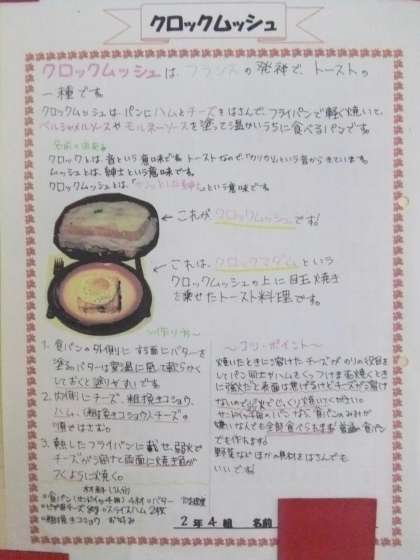 クロックムッシュ
クロックムッシュは、フランスの発祥で、トーストの
一種です。
クロックムッシュは、パンにハムとチーズをはさんで、フライパンで軽く焼いて、
ベシャメルソースやモルネーソースを塗って温かいうちに食べるパンです。
名前の由来
クロックは、音という意味です。トーストなので「カリカリ」という音からきています。
ムッシュとは、紳士という意味です。
クロックムッシュとは、「カリッとした紳士」という意味です。
←これがクロックムッシュです!
←これは、クロックマダムという
クロックムッシュの上に目玉焼き
を乗せたトースト料理です。
〜作り方〜
1. 食パンの外側にする面にバターを
塗る。バターは室温に戻して軟らかく
しておくと塗りやすいです。
2. 内側にチーズ、粗挽きコショウ、
ハム、(粗挽きコショウ)、チーズの
順ではさむ。
3. 熱したフライパンに載せ、弱火で
チーズがう溶けて両面に焼き色が
つくように焼く。
材料(1人分)
食パン(サンドイッチ用)4枚 バター
ピザ用チーズ スライスハム 2枚
粗挽きコショウ お好み
〜コツ・ポイント〜
焼いたときに溶けたチーズがのりの役目を
してパン同士やハムをくっつけます。焼くとき
に強火だと表面は焦げるけどチーズが溶け
ないので弱火でじっくり焼いてください。
サンドイッチ用のパンなら、食パンのみみが
嫌いな人でも全部食べられます。普通の食パン
でも作れます!
野菜などほかの具材をはさんでも
いいです。
2年4組 名前